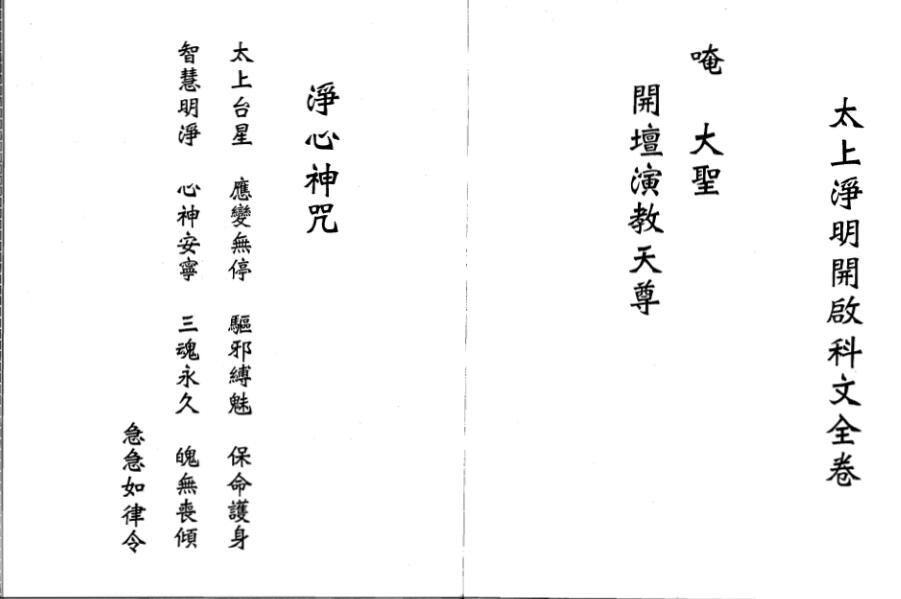 太上淨明開啟科文全卷
唵 大聖
開壇演教天尊
淨心神咒
太上台星 應變無停 驅邪縛魅 保命護身
智慧明淨 心神安寧 三魂永久 魄無喪傾
急急如律令